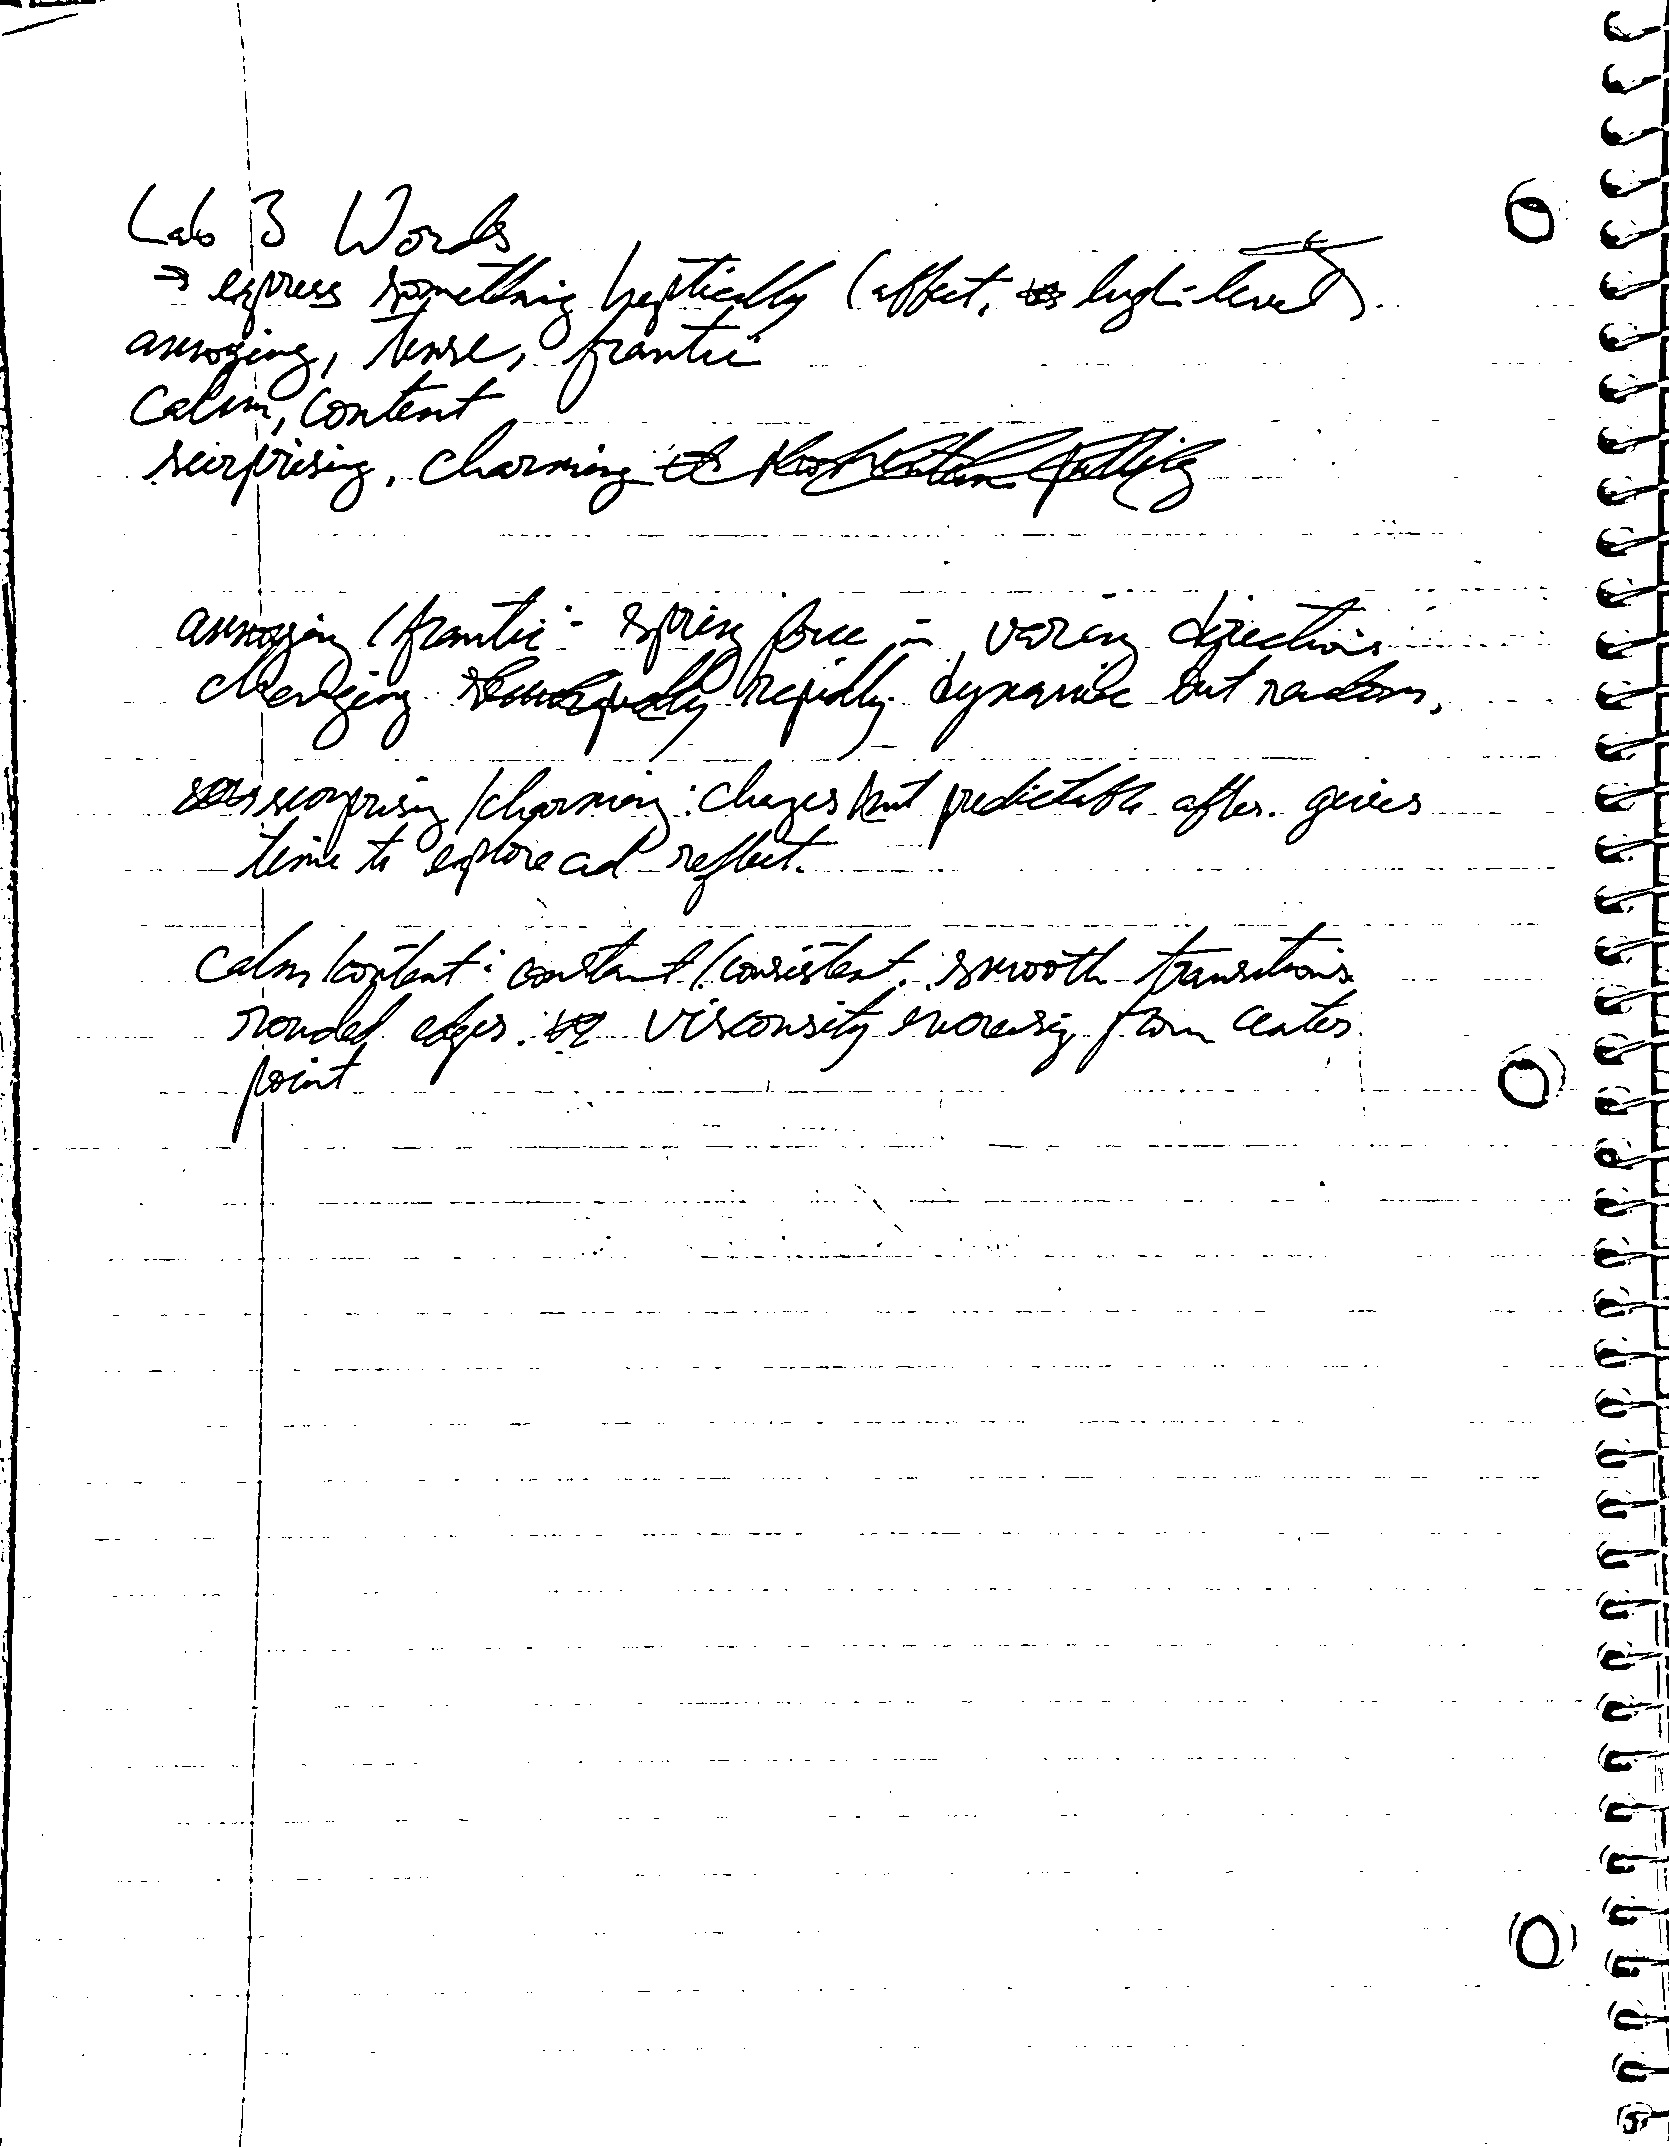 Lab 3 Words
→ express something haptically (affect, high-level).
annoying, tense, frantic
calm, content
surprising, charming
annoying / frantic - spring force in varying directions
changing rapidly. dynamic but random.
surprising / charming: changes but predictable after. gives
time to explore and reflect.
calm / content: constant / consistent. smooth transitions
rounded edges. viscousity increasing from center
point